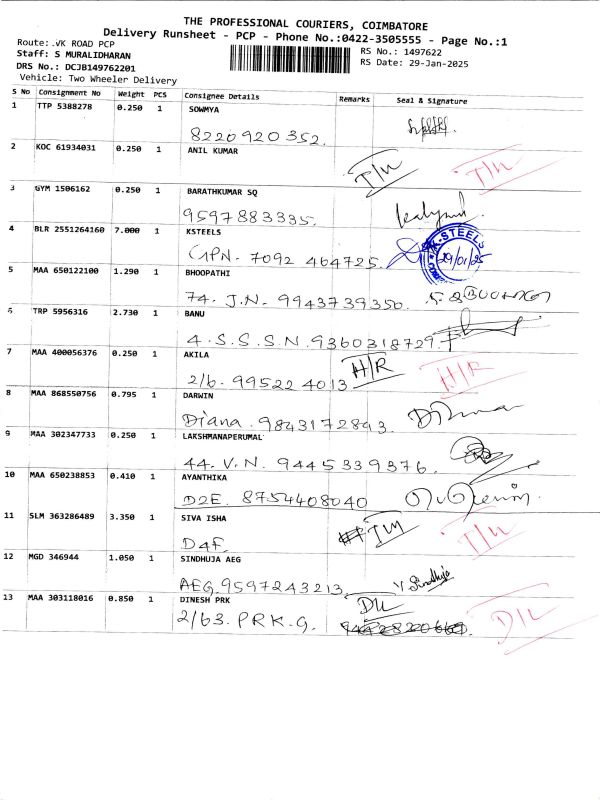 THE PROFESSIONAL COURIERS, COIMBATORE
Delivery Runsheet - PCP - Phone No.:0422-3505555 - Page No.:1
Route: .VK ROAD PCP
RS No.: 1497622
Staff: S MURALIDHARAN
RS Date: 29-Jan-2025
DRS No.: DCJB149762201
Vehicle: Two Wheeler Delivery
S No Consignment No Weight PCS Consignee Details Remarks Seal & Signature
1 TTP 5388278 0.250 1 SOWMYA
8220920352.
2 KOC 61934031 0.250 1 ANIL KUMAR
3 GYM 1506162 0.250 1 BARATHKUMAR SQ
9597883335.
4 BLR 2551264160 7.000 1 KSTEELS
GPN. 7092 464725. K-STEELS 29/01/25
5 MAA 650122100 1.290 1 BHOOPATHI
74. J.N. 9943739350.
6 TRP 5956316 2.730 1 BANU
4. S.S.S.N. 9360318729.
7 MAA 400056376 0.250 1 AKILA H/R H/R
2/6. 99522 4013
8 MAA 868550756 0.795 1 DARWIN
Diana. 9843172893.
9 MAA 302347733 0.250 1 LAKSHMANAPERUMAL
44. V.N. 9445339376.
10 MAA 650238853 0.410 1 AYANTHIKA
D2E. 8754408040
11 SLM 363286489 3.350 1 SIVA ISHA
D4F.
12 MGD 346944 1.050 1 SINDHUJA AEG
AEG. 9597243213. V Sindhuja
13 MAA 303118016 0.850 1 DINESH PRK D/L D/L
2/63. P.R.K.G.